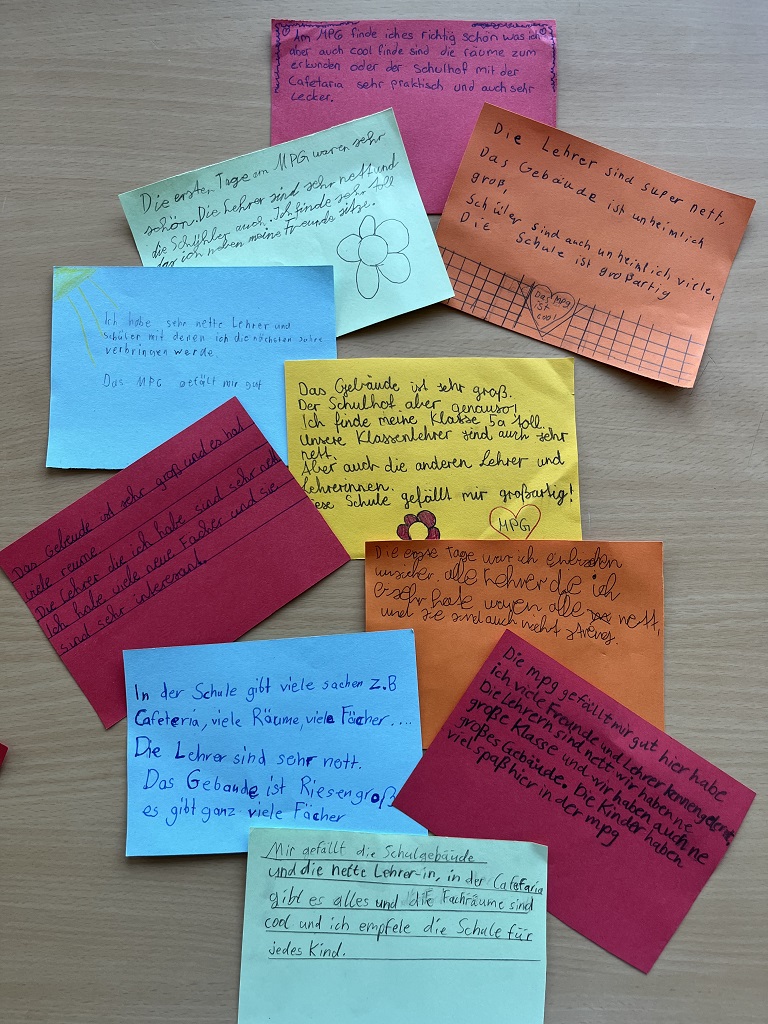 Am MPG finde iches richtig schön was ich
aber auch cool finde sind die räume zum
erkunden oder der Schulhof mit der
Cafetaria sehr praktisch und auch sehr
Lecker.
Die ersten Tage am MPG waren sehr
schön. Die Lehrer sind sehr nett und
die Schühler auch. Ich finde sehr toll
das ich neben meine Freunde sitze.
Die Lehrer sind super nett,
Das Gebäude ist unheimlich
groß,
Schüler sind auch unheimlich viele,
Die Schule ist großartig
Das MPG
ist
cool
Ich habe sehr nette Lehrer und
Schüler mit denen ich die nächsten Jahre
verbringen werde.
Das MPG gefällt mir gut
Das Gebäude ist sehr groß.
Der Schulhof aber genauso!
Ich finde meine Klasse 5a toll.
Unsere Klassenlehrer sind auch sehr
nett.
Aber auch die anderen Lehrer und
Lehrerinnen.
Diese Schule gefällt mir großartig!
MPG
Das Gebeude ist sehr groß und es hat
viele reume
Die Lehrer die ich habe sind sehr nett
Ich habe viele neue Fächer und sie
sind sehr interesant.
Die erste Tage war ich
unsicher. alle Lehrer die ich
hate waren alle nett,
und sie sind auch nicht streng.
In der Schule gibt viele sachen z.B
Cafeteria, viele Räume, viele Fächer....
Die Lehrer sind sehr nett.
Das Gebaude ist Riesengroß
es gibt ganz viele Fächer
Die mpg gefällt mir gut hier habe
ich viele Freunde und Lehrer kennengelernt,
Die Lehrern sind nett wir haben ne
große Klasse und wir haben auch ne
großes Gebäude. Die Kinder haben
viel spaß hier in der mpg
Mir gefällt die Schulgebäude
und die nette Lehrer-in, in der Cafetaria
gibt es alles und die Fachräume sind
cool und ich empfele die Schule für
jedes Kind.